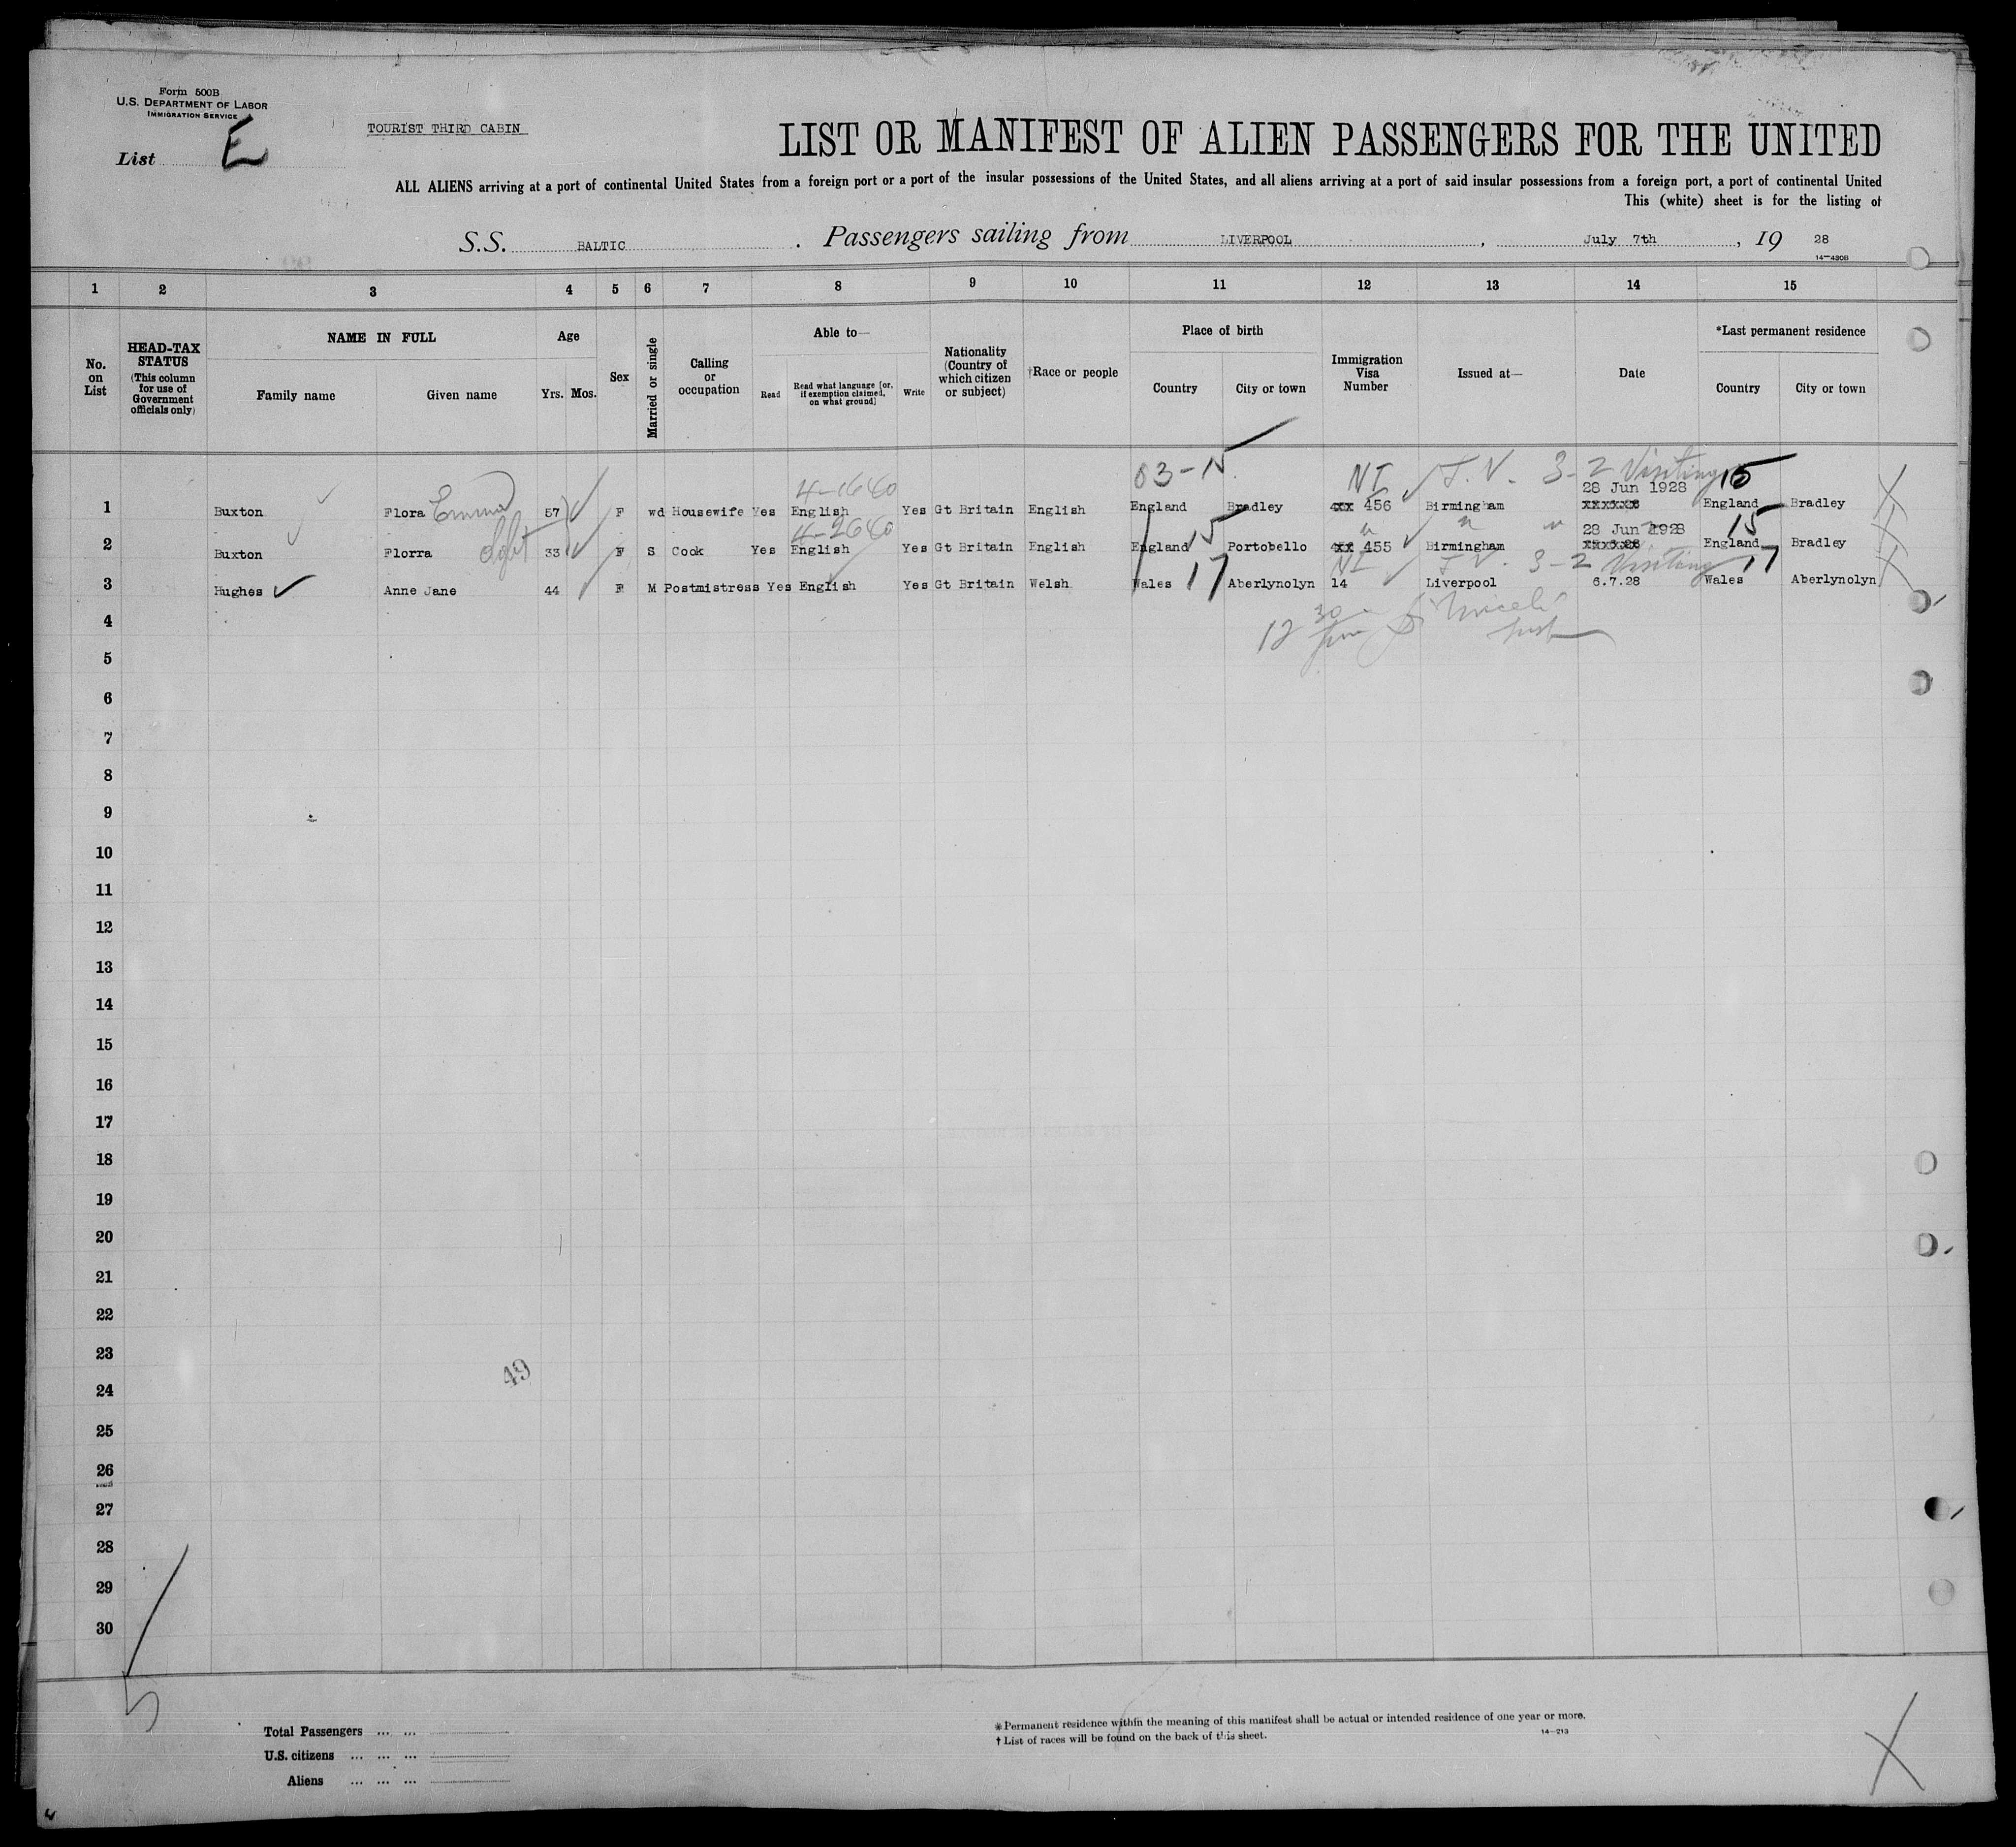 Form 500B
U.S. DEPARTMENT OF LABOR
IMMIGRATION SERVICE
List E
TOURIST THIRD CABIN
LIST OR MANIFEST OF ALIEN PASSENGERS FOR THE UNITED
ALL ALIENS arriving at a port of continental United States from a foreign port or a port of the insular possessions of the United States, and all aliens arriving at a port of said insular possessions from a foreign port, a port of continental United
This (white) sheet is for the listing of
S.S. BALTIC . Passengers sailing from LIVERPOOL , July 7th , 19 28
14—430B
1 2 3 4 5 6 7 8 9 10 11 12 13 14 15
No. on List
HEAD-TAX STATUS (This column for use of Government officials only)
NAME IN FULL
Family name Given name
Age
Yrs. Mos.
Sex
Married or single
Calling or occupation
Able to—
Read
Read what language [or, if exemption claimed, on what ground]
Write
Nationality (Country of which citizen or subject)
†Race or people
Place of birth
Country City or town
Immigration Visa Number
Issued at—
Date
*Last permanent residence
Country City or town
4-1640 03-15 NI T.V. 3-2 Visiting 15
1 Buxton Flora Emma 57 F wd Housewife Yes English Yes Gt Britain English England Bradley xx 456 Birmingham 28 Jun 1928 England Bradley
4-2640 15 " " " 15
2 Buxton Florra 33 F S Cook Yes English Yes Gt Britain English England Portobello xx 455 Birmingham 28 Jun 1928 England Bradley
NI T.V. 3-2 Visiting 17
3 Hughes Anne Jane 44 F M Postmistress Yes English Yes Gt Britain Welsh Wales 17 Aberlynolyn 14 Liverpool 6.7.28 Wales Aberlynolyn
4 12 30
5
6
7
8
9
10
11
12
13
14
15
16
17
18
19
20
21
22
23
49
24
25
26
27
28
29
30
Total Passengers ... ...
U.S. citizens ... ... ...
Aliens ... ... ...
* Permanent residence within the meaning of this manifest shall be actual or intended residence of one year or more.
† List of races will be found on the back of this sheet.
14—213